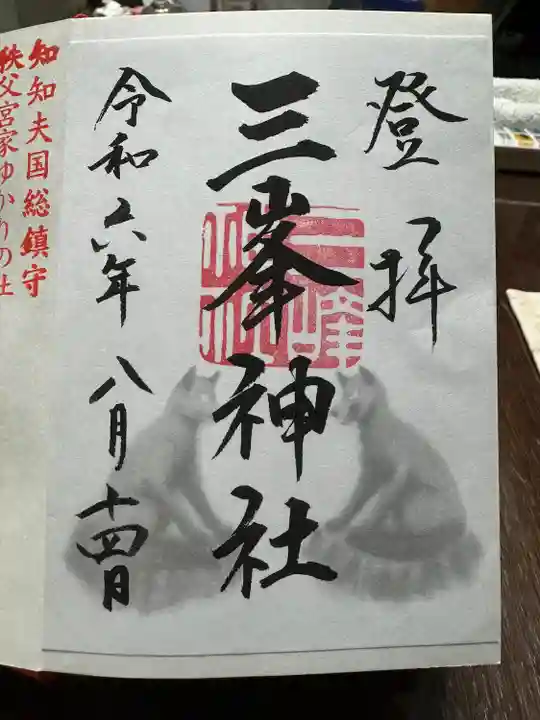 登拝
三峯神社
令和六年八月十四日
知知夫国総鎮守
秩父宮家ゆかりの社